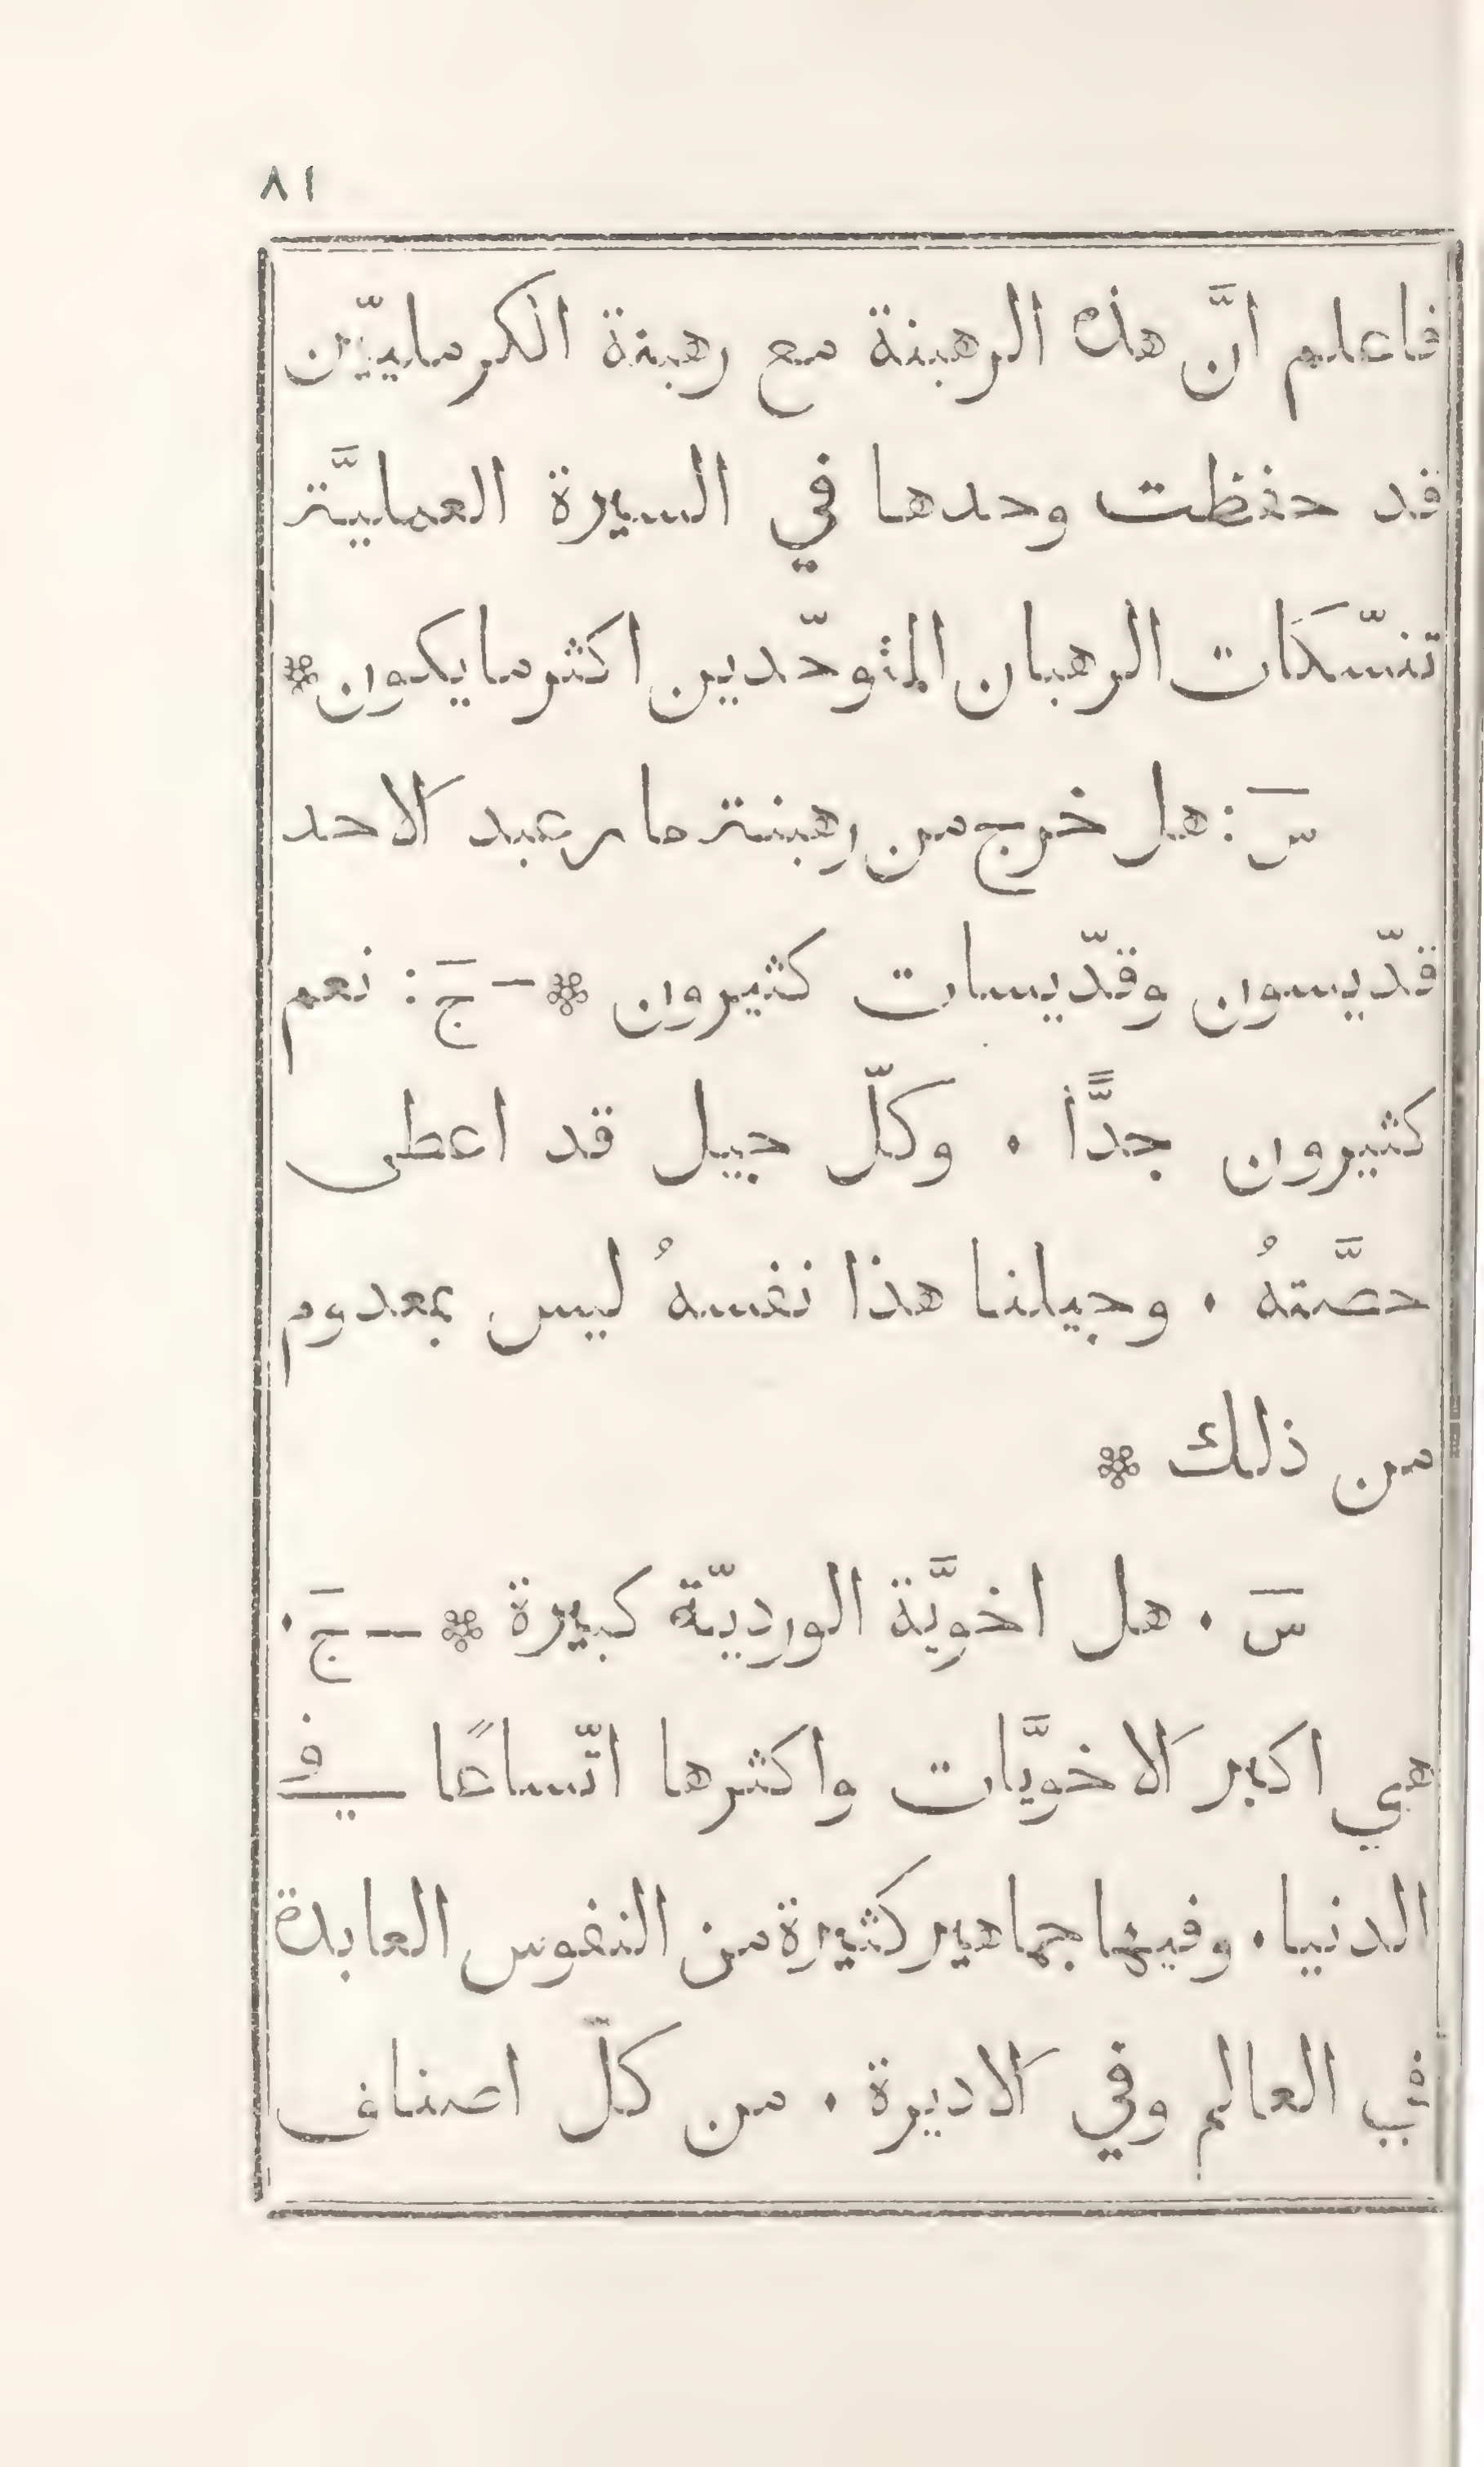 ٨١
فاعلم انَّ هذه الرهبنة مع رهبنة الكرمليّين
قد حفظت وحدها في السيرة العمليَّة
تنسّكات الرهبان المتوحّدين اكثر ما يكون *
سَ : هل خرج من رهبنة مار عبد الاحد
قدّيسون وقدّيسات كثيرون * — جَ : نعم
كثيرون جدًّا . وكلّ جيل قد اعطى
حصَّتهُ . وجيلنا هذا نفسهُ ليس بمعدوم
من ذلك *
سَ . هل اخويَّة الورديّة كبيرة * — جَ .
هي اكبر الاخويَّات واكثرها اتّساعًا في
الدنيا . وفيها جماهير كثيرة من النفوس العابدة
في العالم وفي الاديرة . من كلّ اصناف